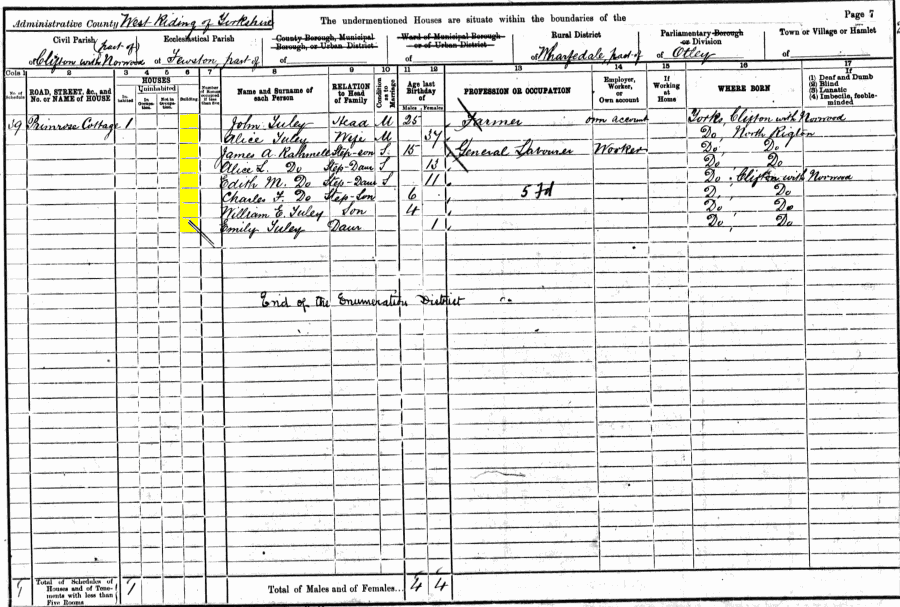 Administrative County West Riding of Yorkshire The undermentioned Houses are situate within the boundaries of the Page 7
Civil Parish Ecclesiastical Parish County Borough, Municipal Borough, or Urban District Ward of Municipal Borough or of Urban District Rural District Parliamentary Borough or Division Town or Village or Hamlet
(part of)
of Clifton with Norwood of Fewston, part of of of of Wharfedale, part of of Otley of
Cols 1 2 3 4 5 6 7 8 9 10 11 12 13 14 15 16 17
No. of Schedule ROAD, STREET, &c., and No. or NAME of HOUSE HOUSES Inhabited Uninhabited In Occupation Not in Occupation Building Number of Rooms occupied if less than five Name and Surname of each Person RELATION to Head of Family Condition as to Marriage Age last Birthday of Males Females PROFESSION OR OCCUPATION Employer, Worker, or Own account If Working at Home WHERE BORN If (1) Deaf and Dumb (2) Blind (3) Lunatic (4) Imbecile, feeble-minded
39 Primrose Cottage 1 John Tuley Head M 25 Farmer own account Yorks, Clifton with Norwood
Alice Tuley Wife M 37 Do, North Rigton
James A. Rathmell Step-son S. 15 General Labourer Worker Do Do
Alice L. Do Step-Daur S 13 Do Do
Edith M. Do Step-Daur S 11 Do, Clifton with Norwood
Charles F. Do Step-Son 6 5 Do, Do
William E. Tuley Son 4 Do Do
Emily Tuley Daur 1 Do, Do
End of the Enumeration District
Total of Schedules of Houses and of Tenements with less than Five Rooms Total of Males and of Females... 4 4